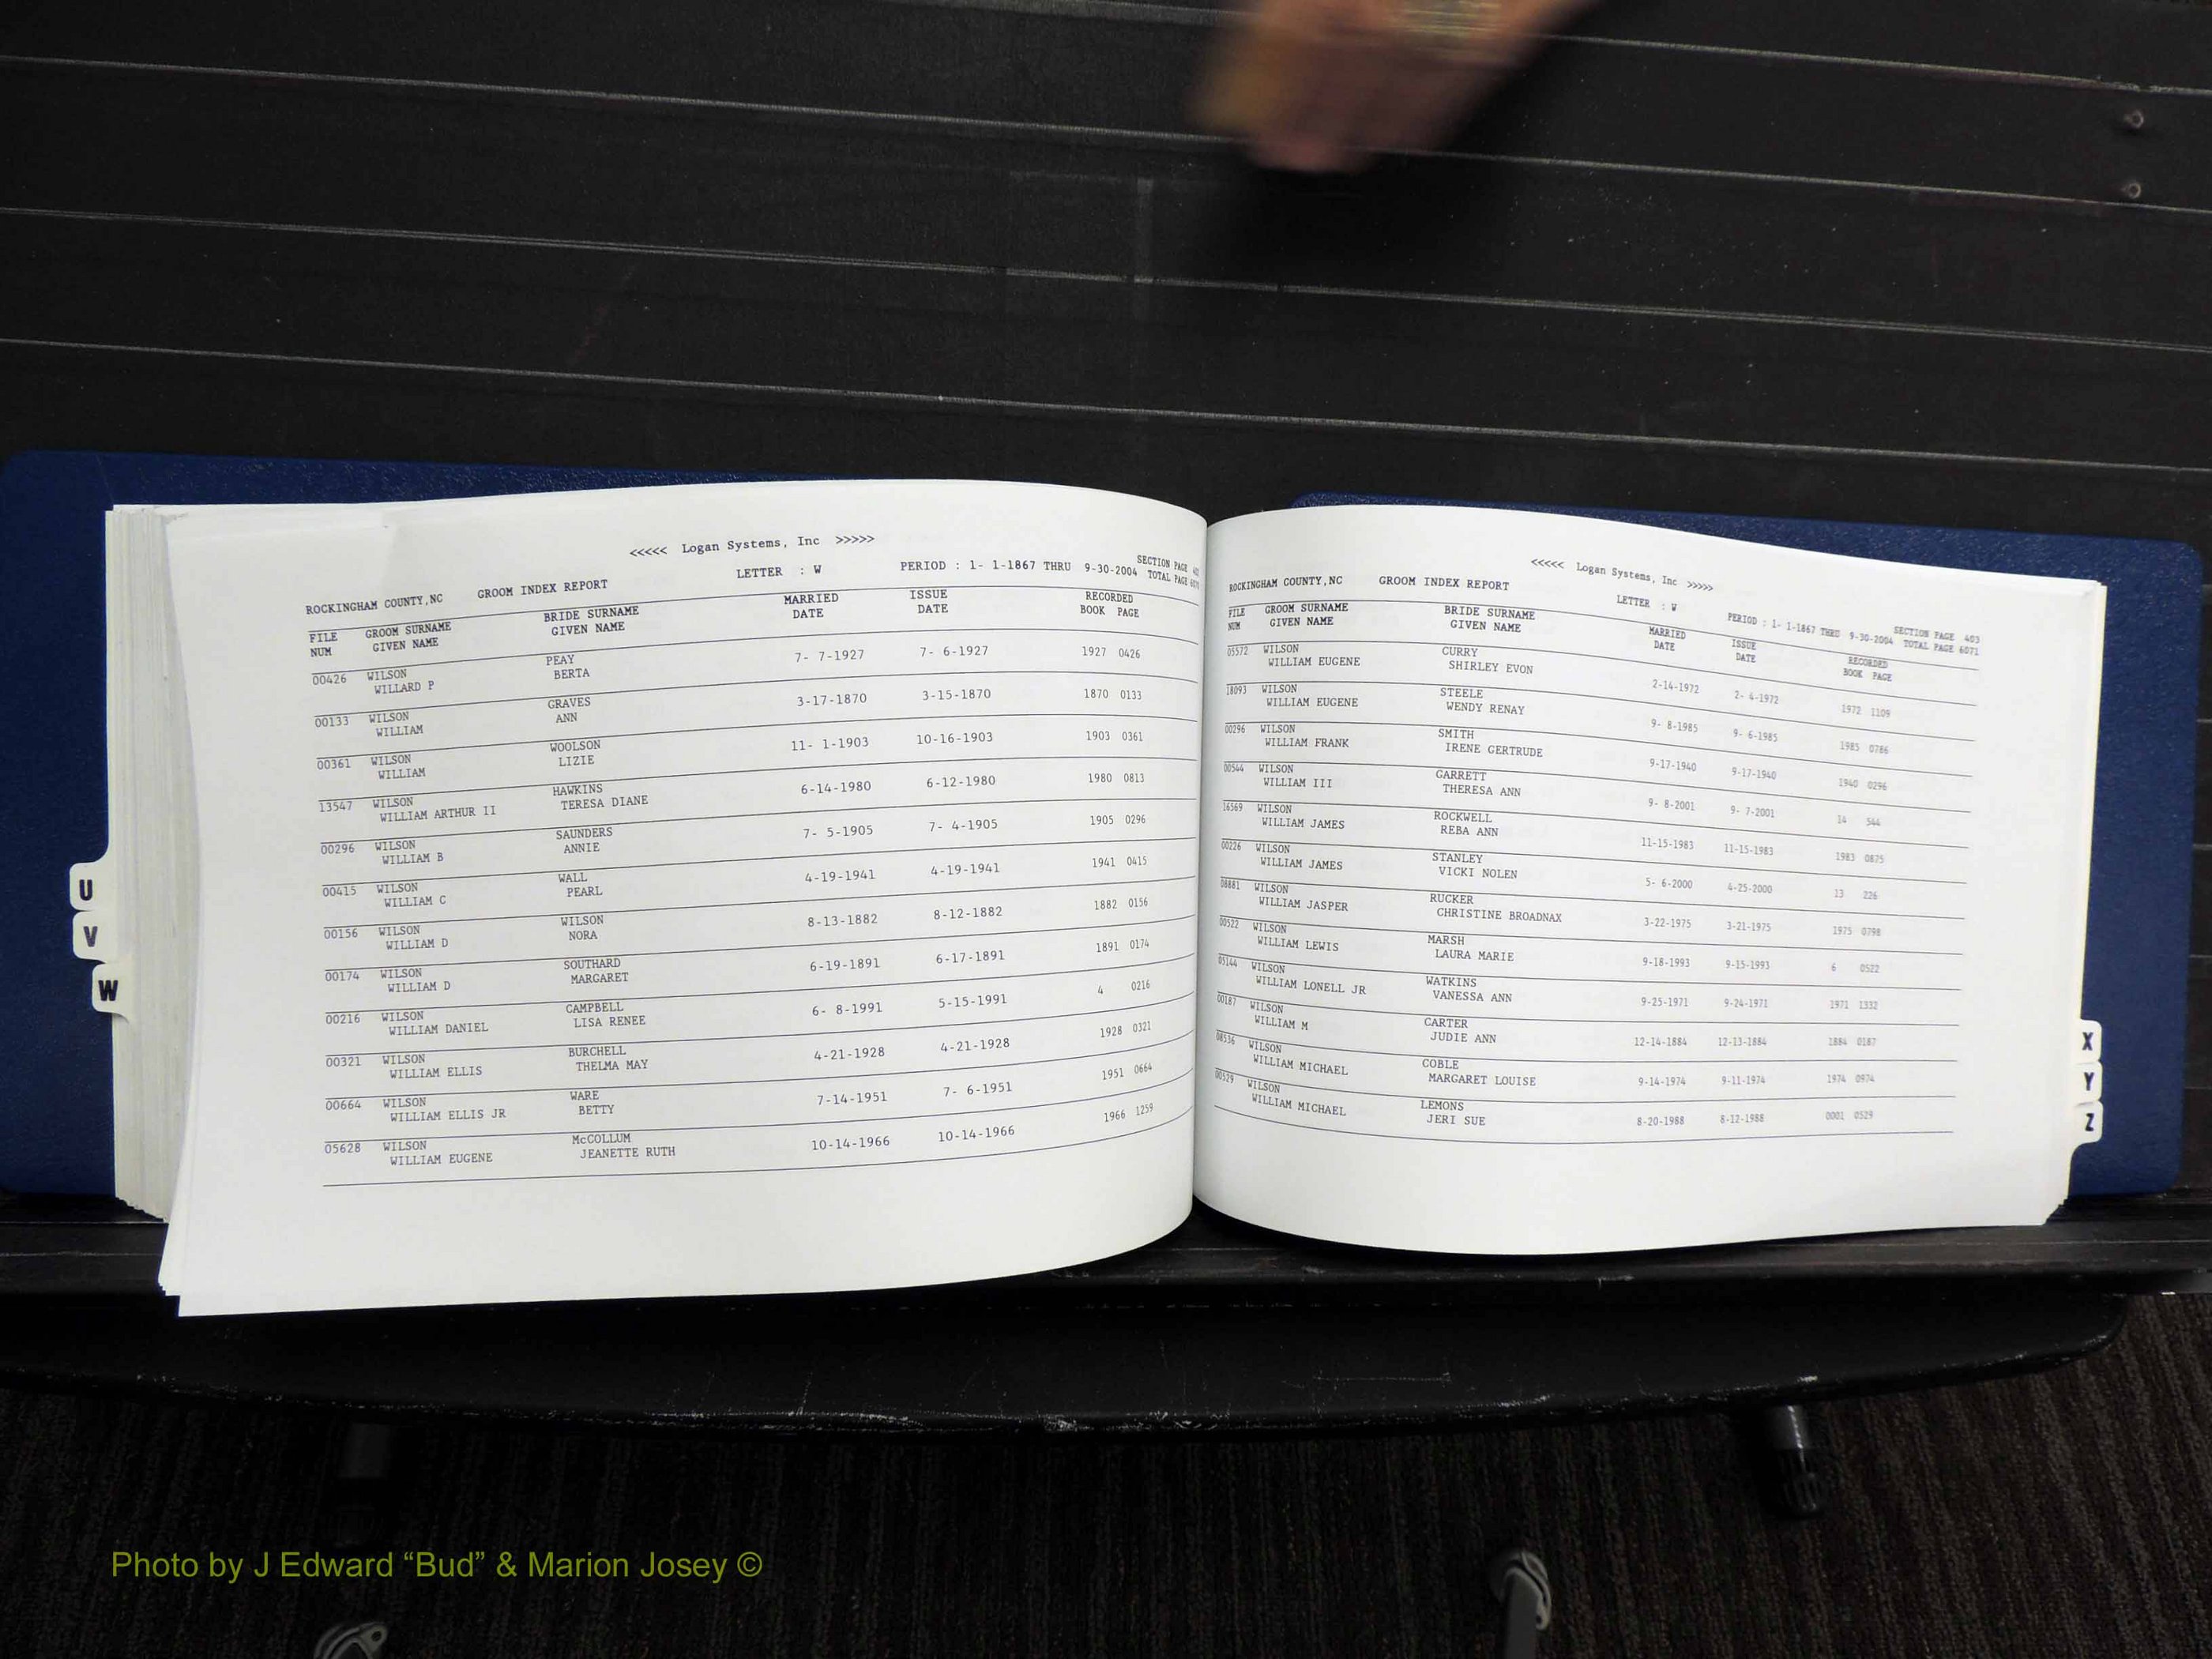 <<<<< Logan Systems, Inc >>>>>
ROCKINGHAM COUNTY,NC GROOM INDEX REPORT LETTER : W PERIOD : 1- 1-1867 THRU 9-30-2004 SECTION PAGE
TOTAL PAGE
FILE GROOM SURNAME BRIDE SURNAME MARRIED ISSUE RECORDED
NUM GIVEN NAME GIVEN NAME DATE DATE BOOK PAGE
00426 WILSON PEAY 7- 7-1927 7- 6-1927 1927 0426
WILLARD P BERTA
00133 WILSON GRAVES 3-17-1870 3-15-1870 1870 0133
WILLIAM ANN
00361 WILSON WOOLSON 11- 1-1903 10-16-1903 1903 0361
WILLIAM LIZIE
13547 WILSON HAWKINS 6-14-1980 6-12-1980 1980 0813
WILLIAM ARTHUR II TERESA DIANE
00296 WILSON SAUNDERS 7- 5-1905 7- 4-1905 1905 0296
WILLIAM B ANNIE
00415 WILSON WALL 4-19-1941 4-19-1941 1941 0415
WILLIAM C PEARL
00156 WILSON WILSON 8-13-1882 8-12-1882 1882 0156
WILLIAM D NORA
00174 WILSON SOUTHARD 6-19-1891 6-17-1891 1891 0174
WILLIAM D MARGARET
00216 WILSON CAMPBELL 6- 8-1991 5-15-1991 4 0216
WILLIAM DANIEL LISA RENEE
00321 WILSON BURCHELL 4-21-1928 4-21-1928 1928 0321
WILLIAM ELLIS THELMA MAY
00664 WILSON WARE 7-14-1951 7- 6-1951 1951 0664
WILLIAM ELLIS JR BETTY
05628 WILSON McCOLLUM 10-14-1966 10-14-1966 1966 1259
WILLIAM EUGENE JEANETTE RUTH
U
V
W
<<<<< Logan Systems, Inc >>>>>
ROCKINGHAM COUNTY,NC GROOM INDEX REPORT LETTER : W PERIOD : 1- 1-1867 THRU 9-30-2004 SECTION PAGE 403
TOTAL PAGE 6071
FILE GROOM SURNAME BRIDE SURNAME MARRIED ISSUE RECORDED
NUM GIVEN NAME GIVEN NAME DATE DATE BOOK PAGE
05572 WILSON CURRY 2-14-1972 2- 4-1972 1972 1109
WILLIAM EUGENE SHIRLEY EVON
18093 WILSON STEELE 9- 8-1985 9- 6-1985 1985 0786
WILLIAM EUGENE WENDY RENAY
00296 WILSON SMITH 9-17-1940 9-17-1940 1940 0296
WILLIAM FRANK IRENE GERTRUDE
00544 WILSON GARRETT 9- 8-2001 9- 7-2001 14 544
WILLIAM III THERESA ANN
16569 WILSON ROCKWELL 11-15-1983 11-15-1983 1983 0875
WILLIAM JAMES REBA ANN
00226 WILSON STANLEY 5- 6-2000 4-25-2000 13 226
WILLIAM JAMES VICKI NOLEN
08881 WILSON RUCKER 3-22-1975 3-21-1975 1975 0798
WILLIAM JASPER CHRISTINE BROADNAX
00522 WILSON MARSH 9-18-1993 9-15-1993 6 0522
WILLIAM LEWIS LAURA MARIE
05144 WILSON WATKINS 9-25-1971 9-24-1971 1971 1332
WILLIAM LONELL JR VANESSA ANN
00187 WILSON CARTER 12-14-1884 12-13-1884 1884 0187
WILLIAM M JUDIE ANN
08536 WILSON COBLE 9-14-1974 9-11-1974 1974 0974
WILLIAM MICHAEL MARGARET LOUISE
00529 WILSON LEMONS 8-20-1988 8-12-1988 0001 0529
WILLIAM MICHAEL JERI SUE
X
Y
Z
Photo by J Edward “Bud” & Marion Josey ©